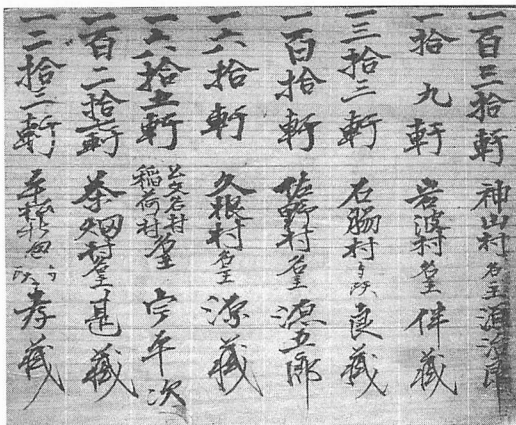 一百三拾軒 神山村 名主 酒治郎
一拾九軒 岩波村 名主 伴蔵
一三拾二軒 石脇村 良蔵
一百拾軒 佐野村 名主 源五郎
一六拾軒 久根村 名主 源蔵
一六拾五軒 公文名村 稲荷村 名主 宇平次
一百二拾軒 茶畑村 名主 甚蔵
一二拾二軒 平松 孝蔵